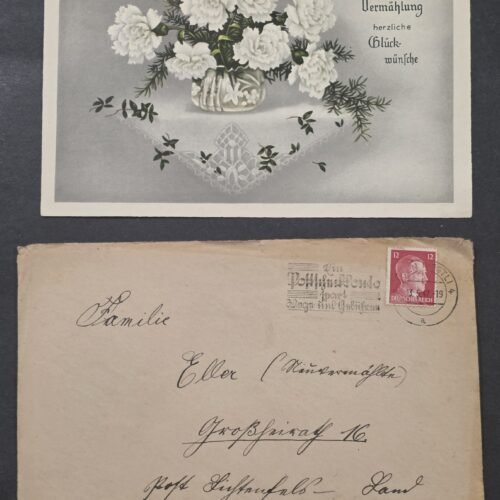 Vermählung
herzliche
Glück-
wünsche
Ein
Postscheckkonto
spart
Wege und Gebühren
12 12
DEUTSCHES REICH
4
19
a
Familie
Eller (Neuvermählte)
Großheirath 16.
Post Lichtenfels – Land